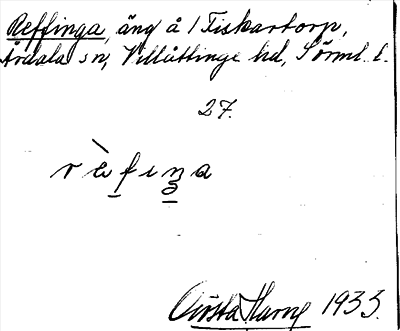 Reffinga, äng å 1 Fiskartorp,
Årdala sn, Villåttinge hd, Sörml. l.
27.
r ѐ f ı n a
Harne 1933.